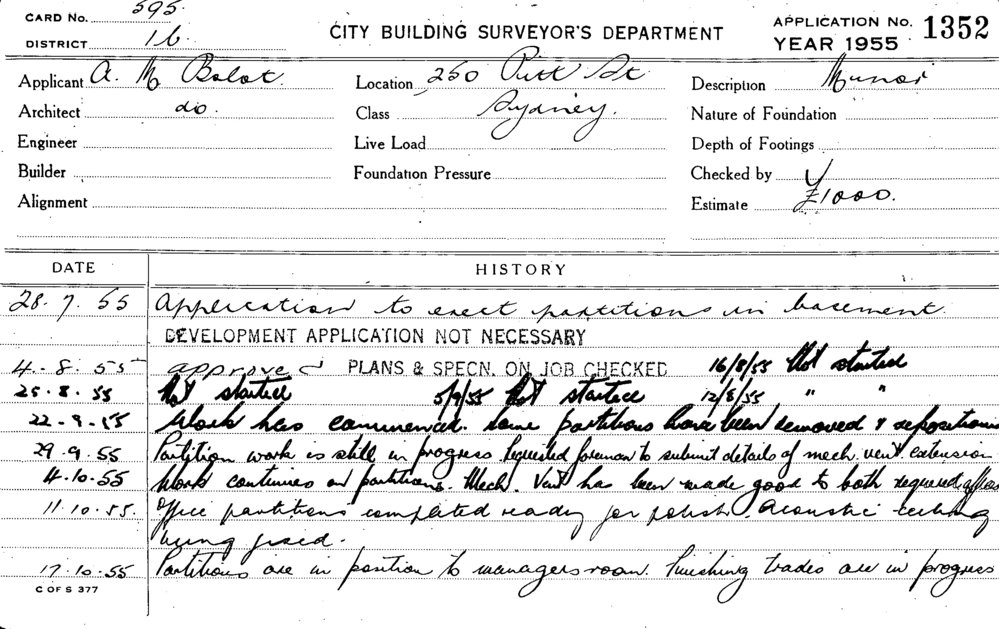 CARD No. 595.
DISTRICT 16
CITY BUILDING SURVEYOR'S DEPARTMENT
APPLICATION No. 1352
YEAR 1955
Applicant A. M Bolot.
Location 250 Pitt St
Description Minor
Architect do.
Class Sydney.
Nature of Foundation
Engineer
Live Load
Depth of Footings
Builder
Foundation Pressure
Checked by
Alignment
Estimate £1000.
DATE HISTORY
28.7.55 Application to erect partitions in basement.
DEVELOPMENT APPLICATION NOT NECESSARY
4.8.55 approved PLANS & SPECN. ON JOB CHECKED 16/8/55 Not started
25.8.55 Not started 5/9/55 Not started 12/8/55 " "
22.9.55 Work has commenced. Some partitions have been removed &
29.9.55 Partition work is still in progress. Requested foreman to submit details of mech. vent. extension
4.10.55 Work continues on partitions. Mech. Vent has been made good to both required offices
11.10.55. Office partitions completed ready for polish. Acoustic ceiling
being fixed.
17.10.55 Partitions are in position to managers room. Finishing trades are in progress
C OF S 377